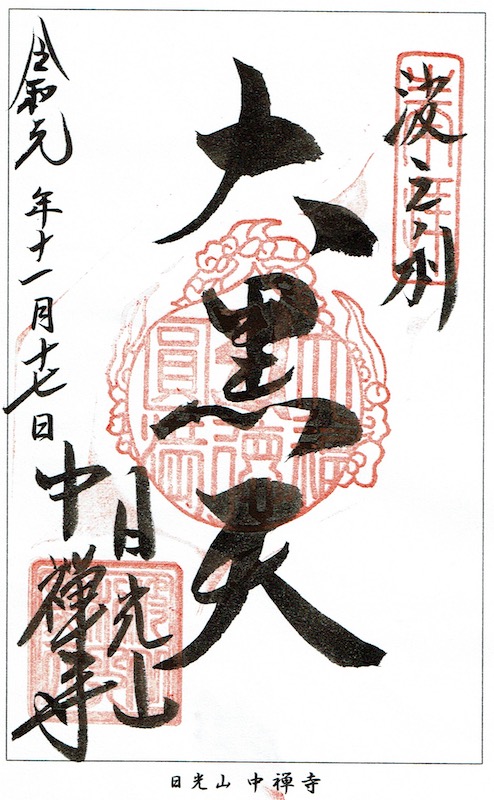 波之利
大黒天
令和元年十一月十七日
日光山
中禅寺
日光山 中禅寺